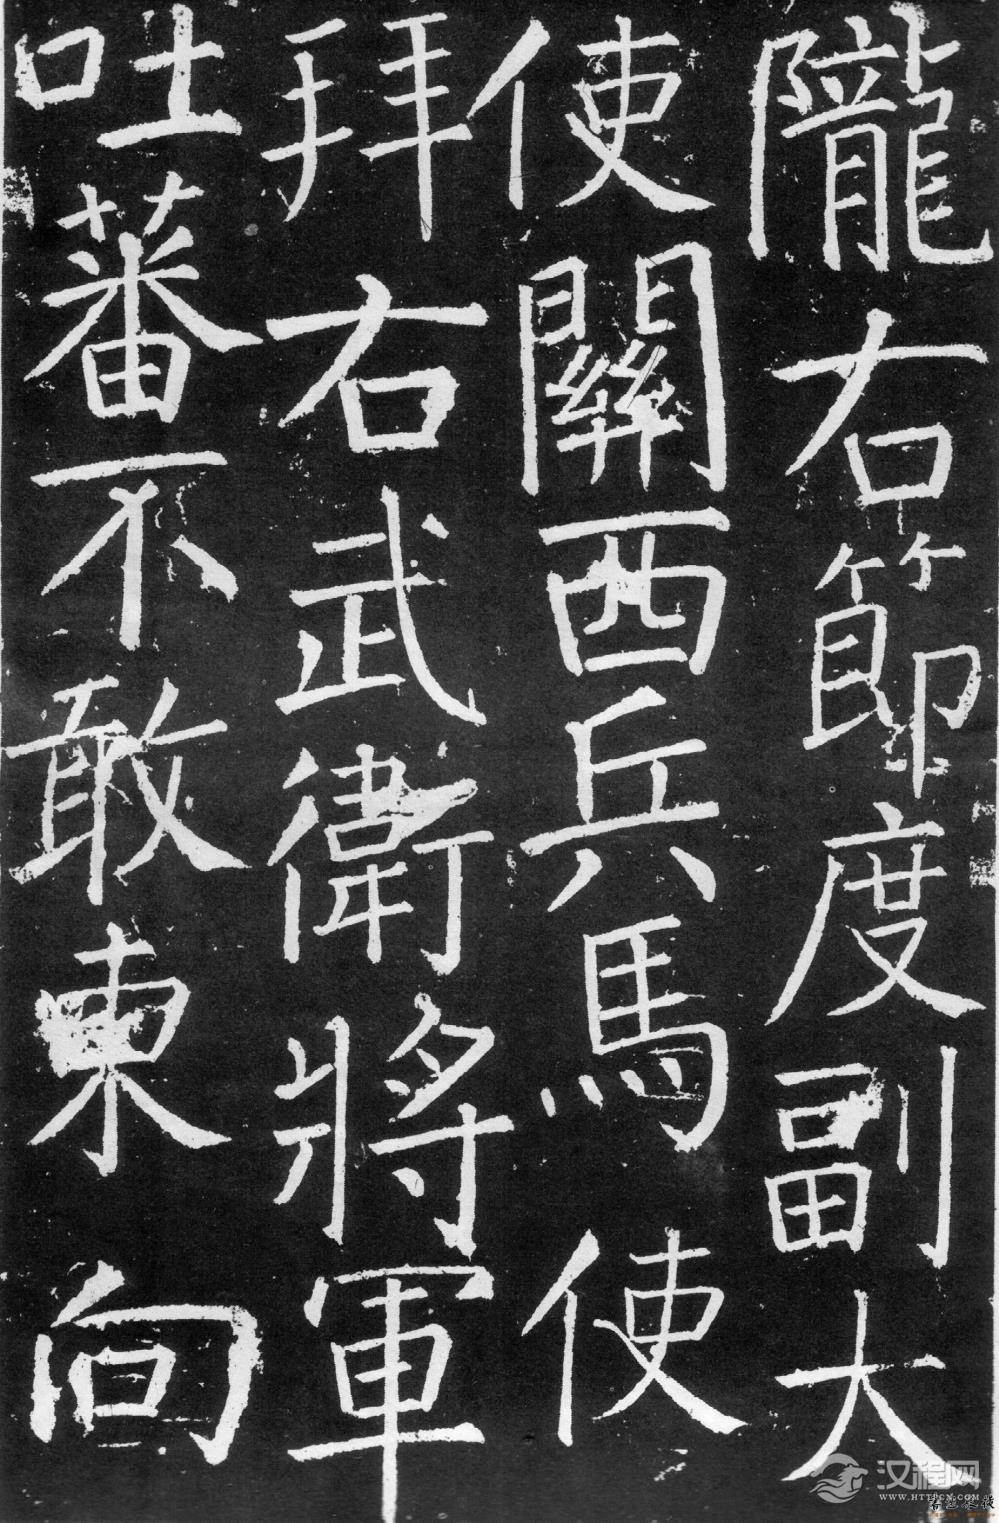 隴右節度副大
使關西兵馬使
拜右武衛將軍
吐蕃不敢東向
汉程网
WWW.HTTPCN.COM